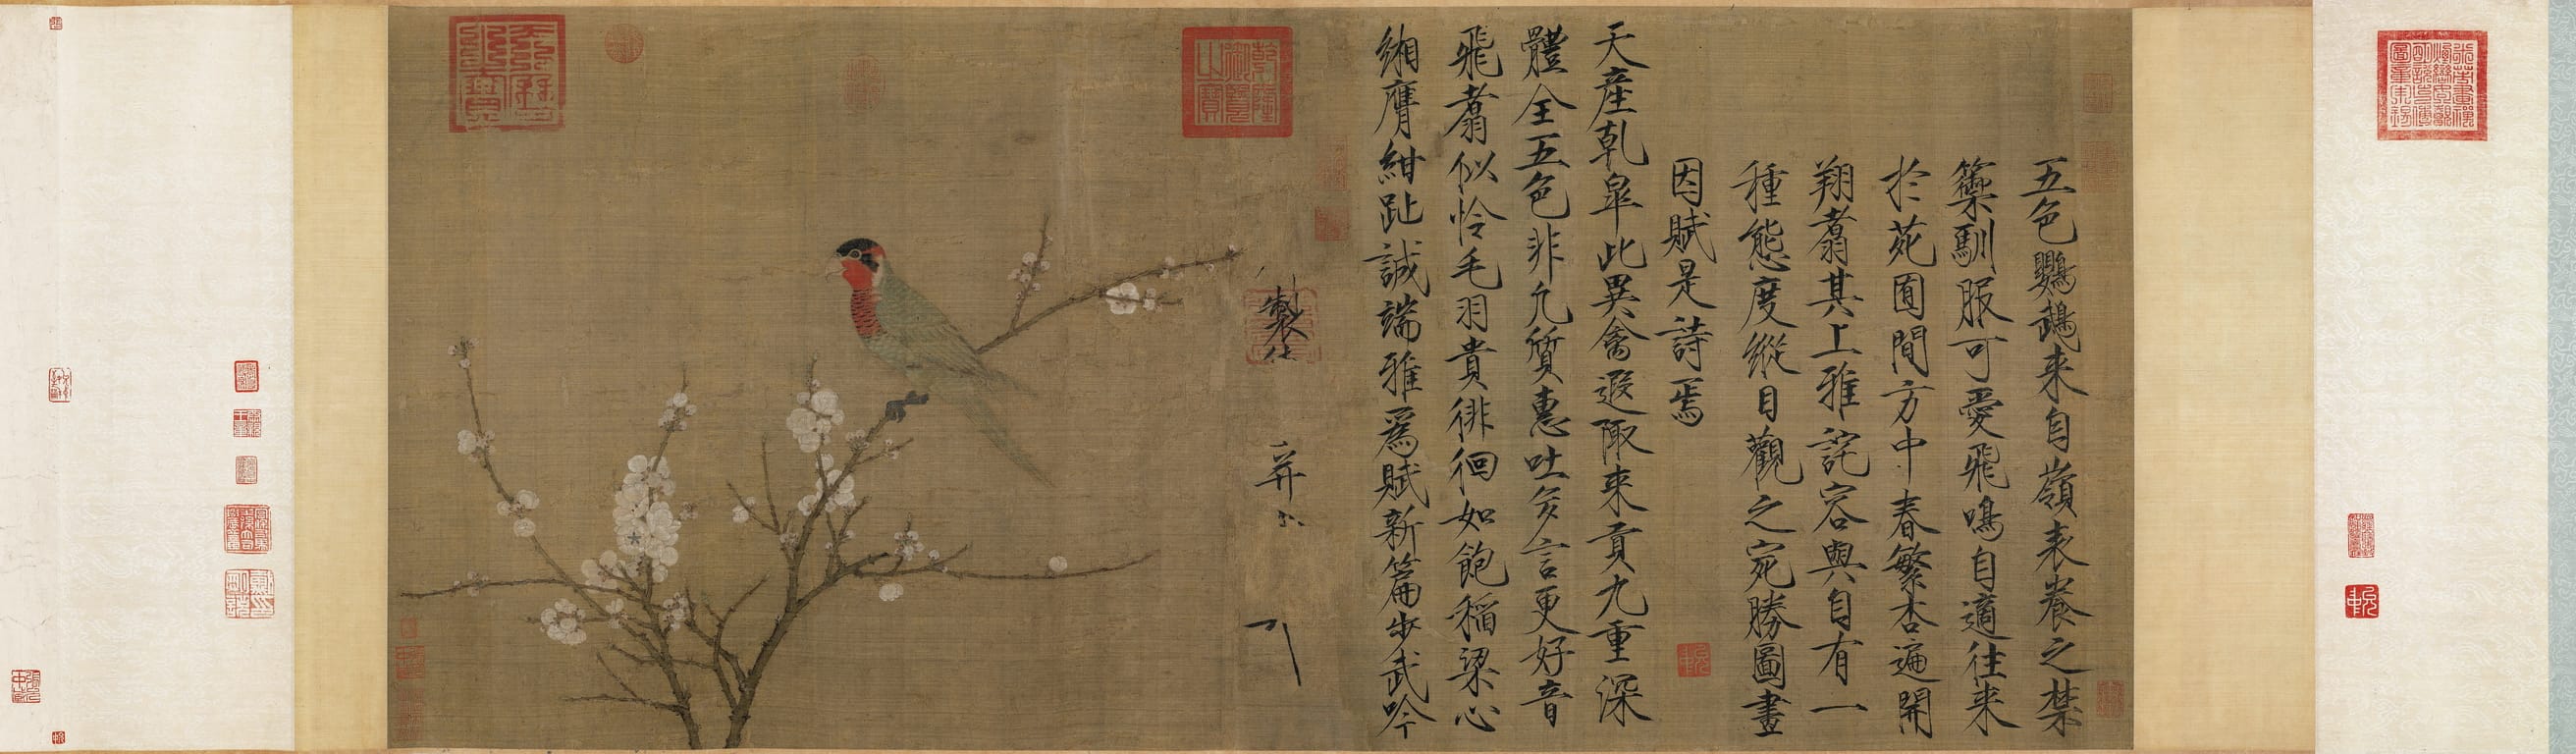 五色鸚鵡来自嶺表養之禁
籞馴服可愛飛鳴自適往来
於苑囿間方中春繁杏遍開
翔翥其上雅詫容與自有一
種態度縱目觀之宛勝圖畫
因賦是詩焉
天産乹皐此異禽遐陬来貢九重深
體全五色非凡質惠吐多言更好音
飛翥似怜毛羽貴徘徊如飽稻粱心
緗膺紺趾誠端雅爲賦新篇步武吟
製